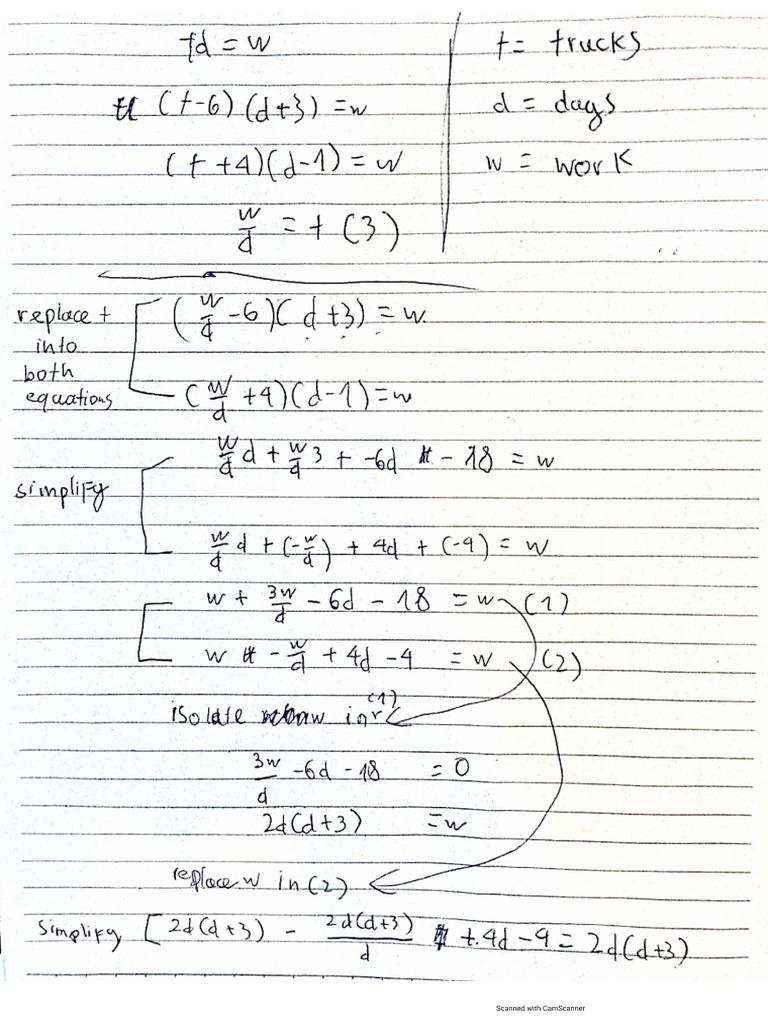 td = w
t = trucks
(t-6)(d+3) = w
d = days
(t+4)(d-1) = w
w = work
w/d = t (3)
replace t into both equations
(w/d -6)(d+3) = w.
(w/d +4)(d-1) = w
simplify
w/d d + w/d 3 + -6d - 18 = w
w/d d + (-w/d) + 4d + (-4) = w
w + 3w/d - 6d - 18 = w (1)
w - w/d + 4d - 4 = w (2)
isolate w in (1)
3w/d - 6d - 18 = 0
2d(d+3) = w
replace w in (2)
Simplify [ 2d(d+3) - 2d(d+3)/d + 4d - 4 = 2d(d+3)
Scanned with CamScanner